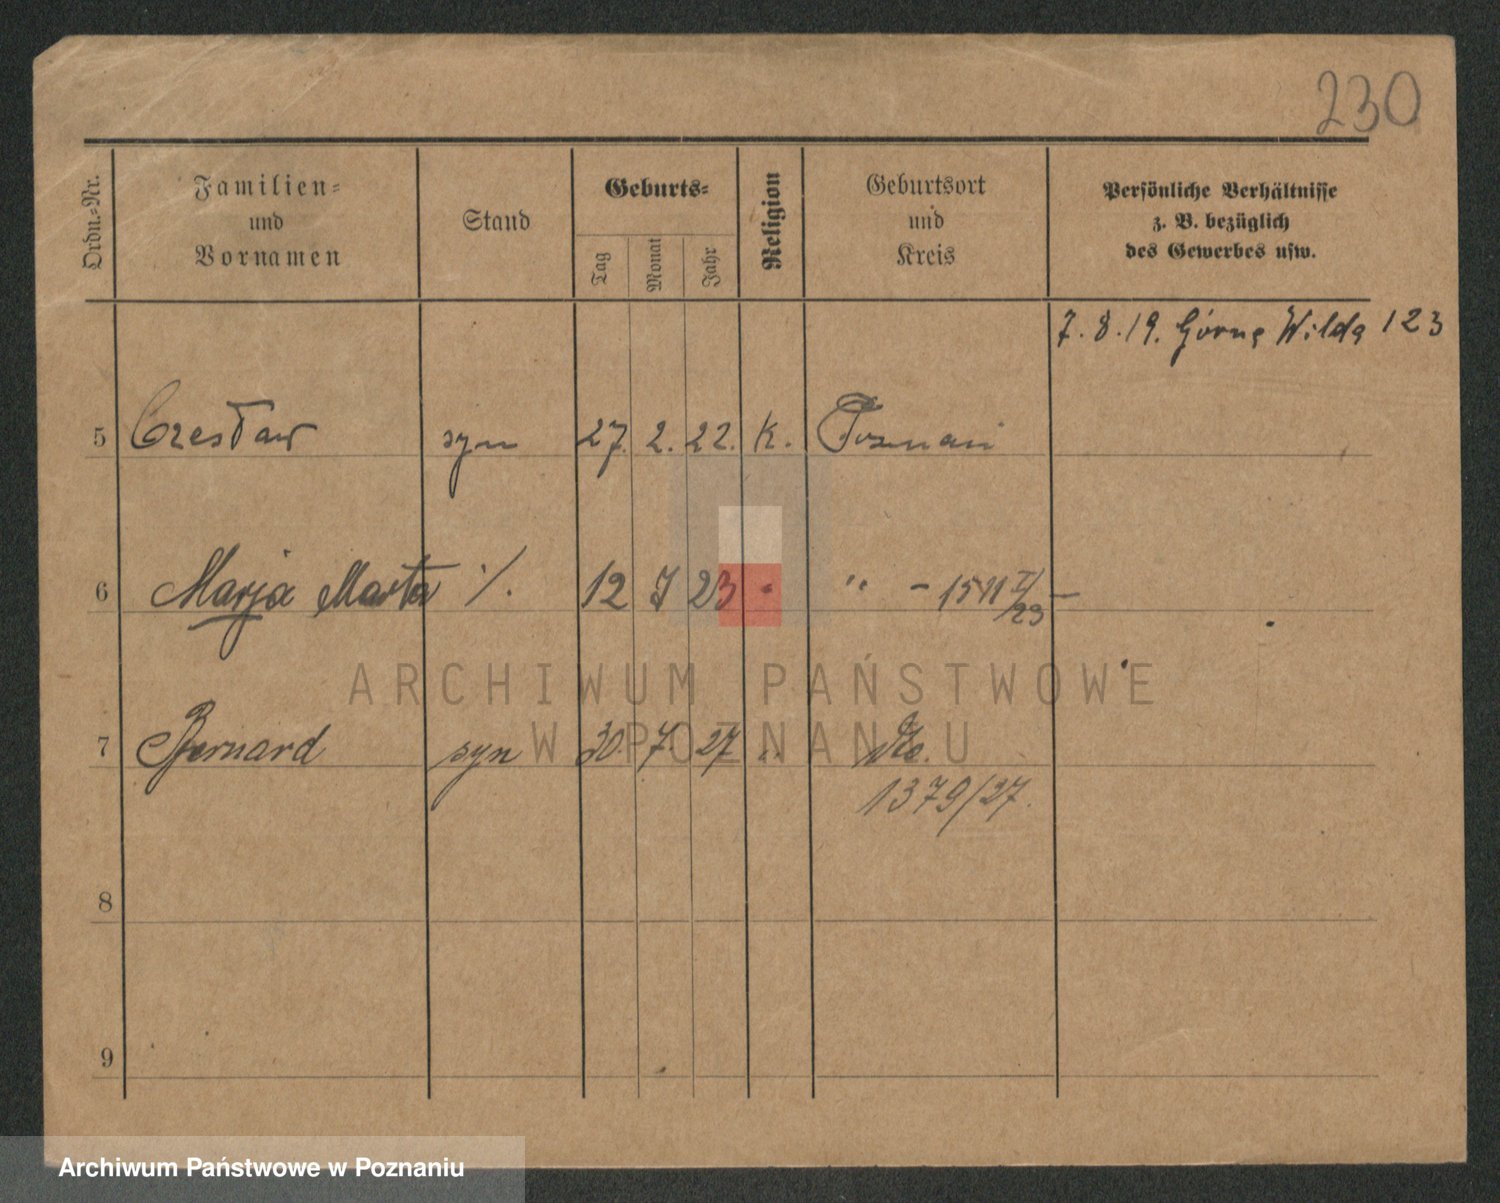 230
Ordn.-Nr. Familien- und Vornamen Stand Geburts- Tag Monat Jahr Religion Geburtsort und Kreis Persönliche Verhältnisse z. B. bezüglich des Gewerbes usw.
7.8.19. Górna Wilda 123
5 Czesław syn 27. 2. 22. K. Poznań
6 Marja Marta ·/. 12 7 23 " " - 1511 I/23 -
ARCHIWUM PAŃSTWOWE
W POZNANIU
7 Bernard syn 30. 7. 27 " dto.
1379/27.
8
9
Archiwum Państwowe w Poznaniu